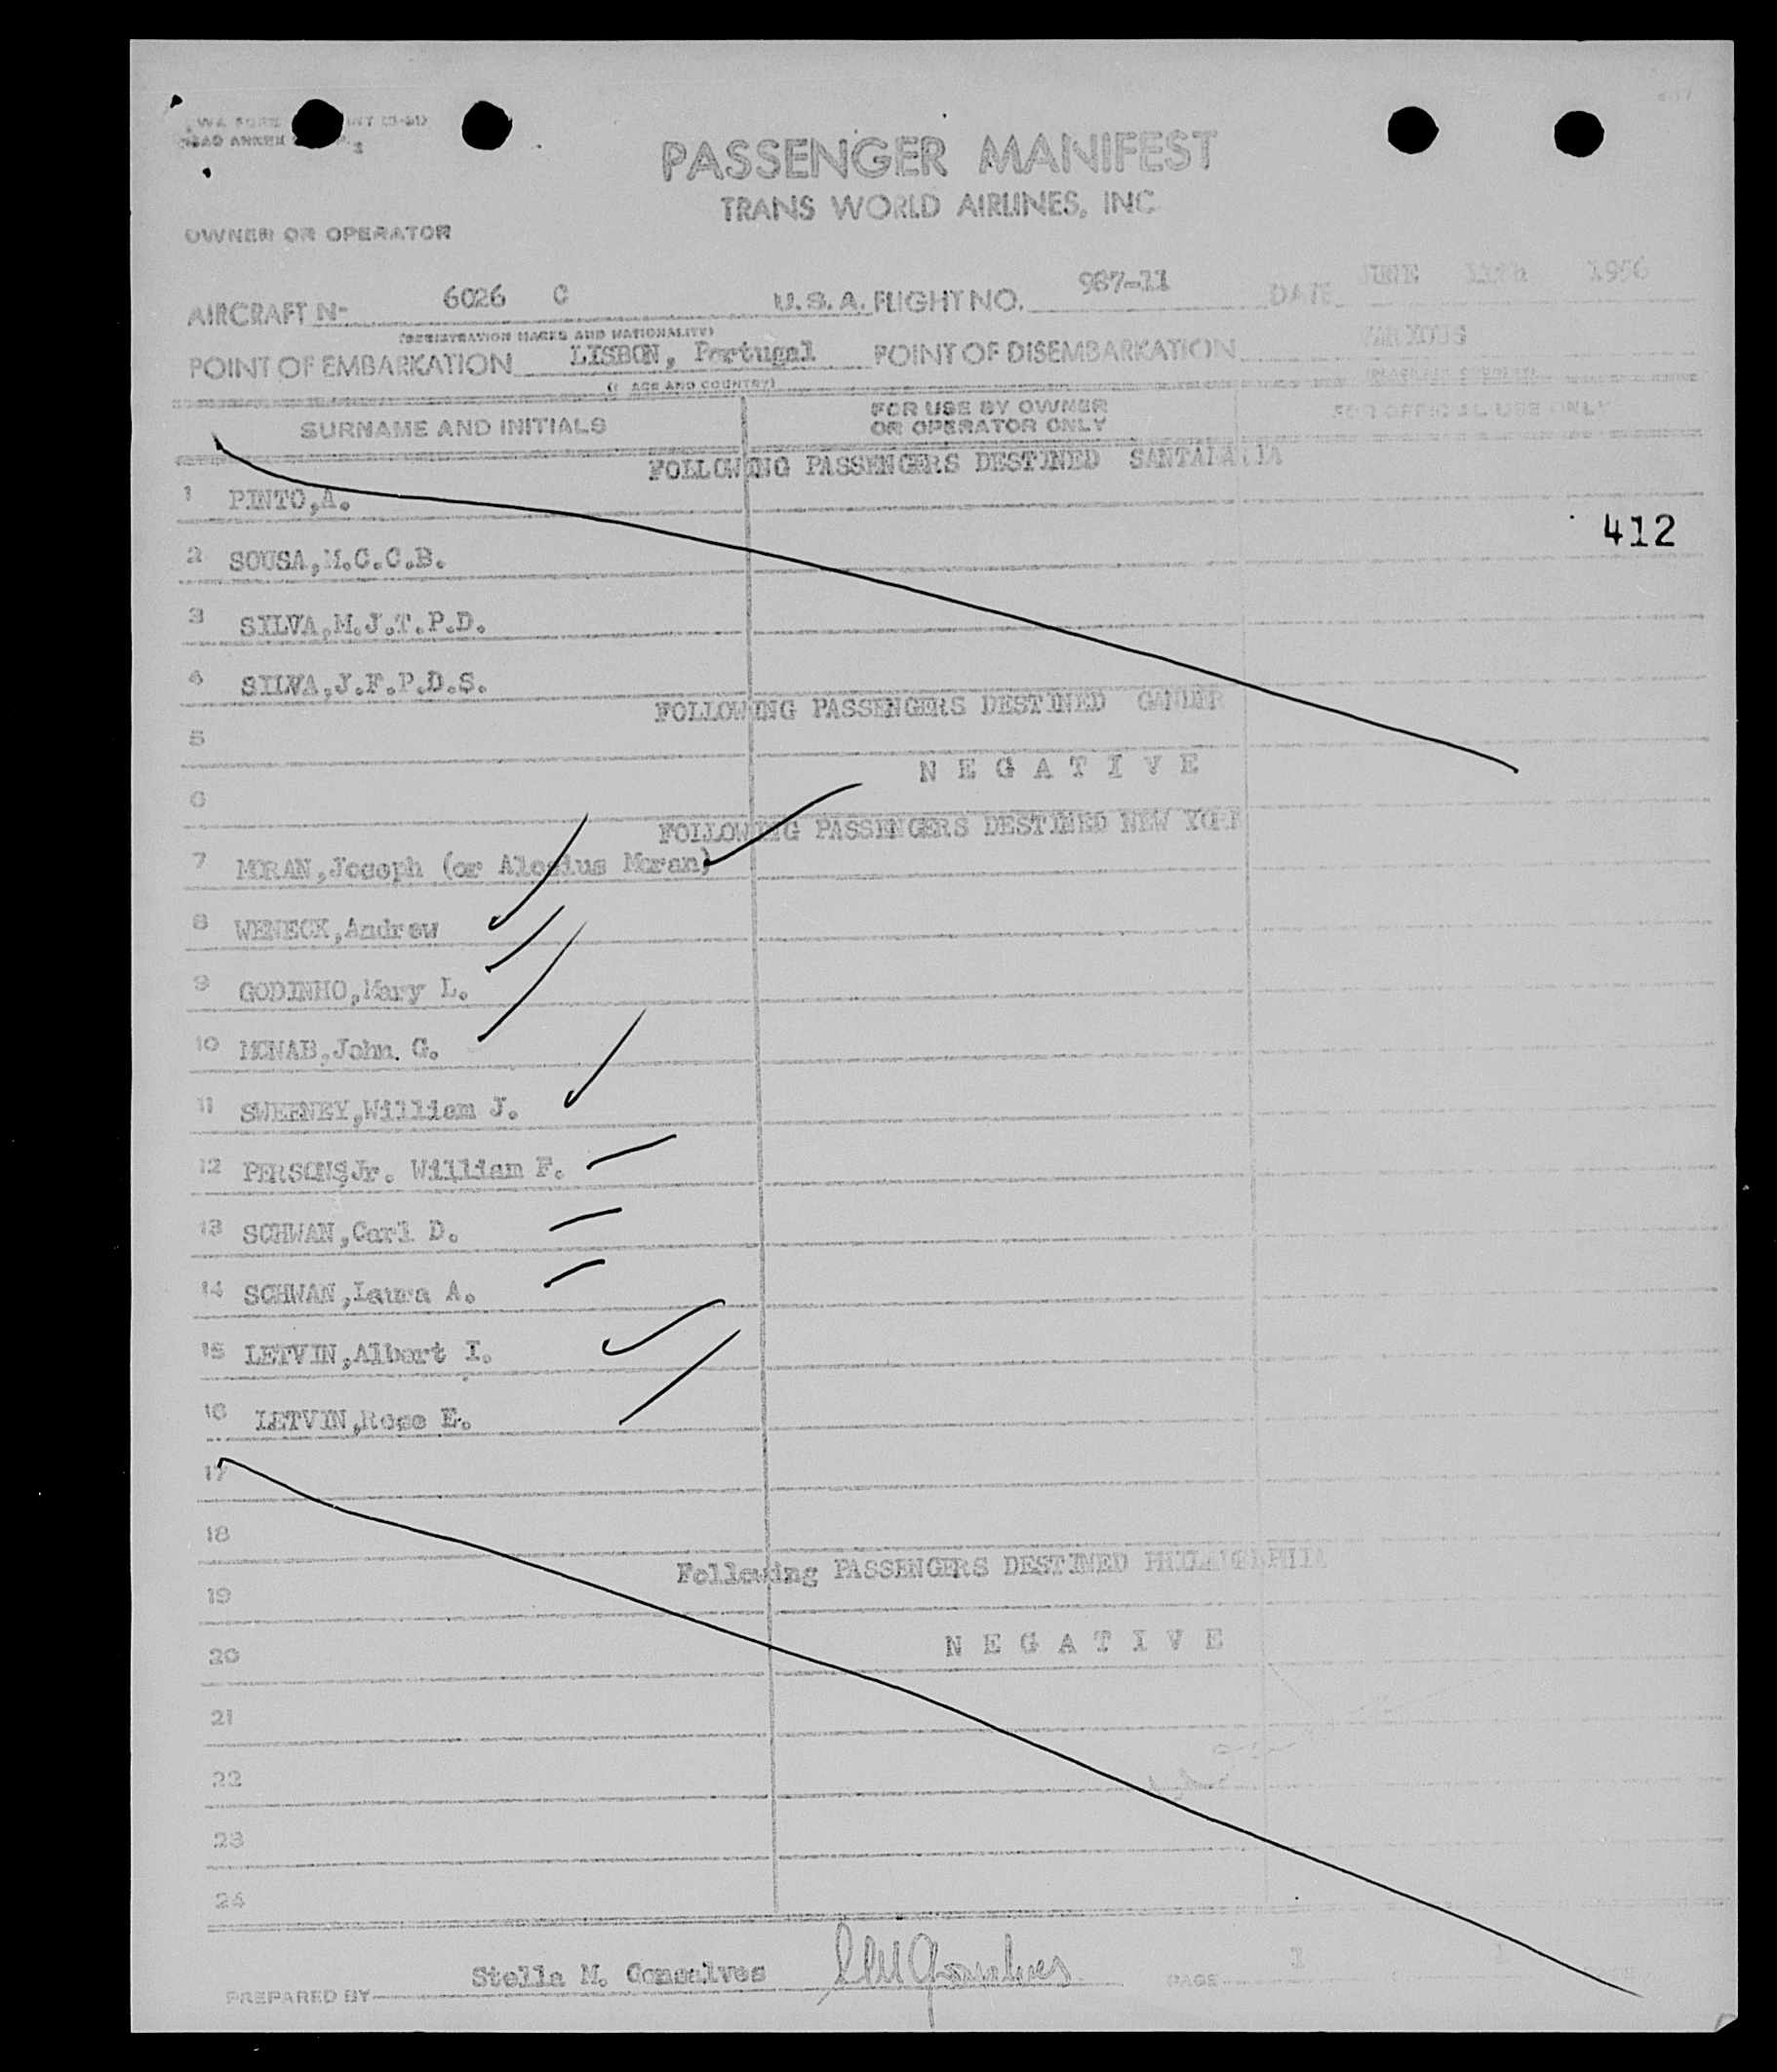 PASSENGER MANIFEST
TRANS WORLD AIRLINES, INC
OWNER OR OPERATOR
AIRCRAFT N- 6026 C U.S.A. FLIGHT NO. 967-11 DATE JUNE 11th 1956
(REGISTRATION MARKS AND NATIONALITY)
POINT OF EMBARKATION LISBON, Portugal POINT OF DISEMBARKATION VARIOUS
(PLACE AND COUNTRY) (PLACE AND COUNTRY)
SURNAME AND INITIALS FOR USE BY OWNER OR OPERATOR ONLY FOR OFFICIAL USE ONLY
FOLLOWING PASSENGERS DESTINED SANTAMARIA
1 PINTO,A.
412
2 SOUSA,M.C.C.B.
3 SILVA,M.J.T.P.D.
4 SILVA,J.F.P.D.S.
FOLLOWING PASSENGERS DESTINED GANDER
5
N E G A T I V E
6
FOLLOWING PASSENGERS DESTINED NEW YORK
7 MORAN,Joseph (or Alosius Moran)
8 WENECK,Andrew
9 GODINHO,Mary L.
10 MCNAB,John G.
11 SWEENEY,William J.
12 PERSONS,Jr. William F.
13 SCHWAN,Carl D.
14 SCHWAN,Laura A.
15 LETVIN,Albert I.
16 LETVIN,Rose E.
17
18
Following PASSENGERS DESTINED PHILADELPHIA
19
N E G A T I V E
20
21
22
23
24
PREPARED BY Stella M. Gonsalves SM Gonsalves PAGE 1 1